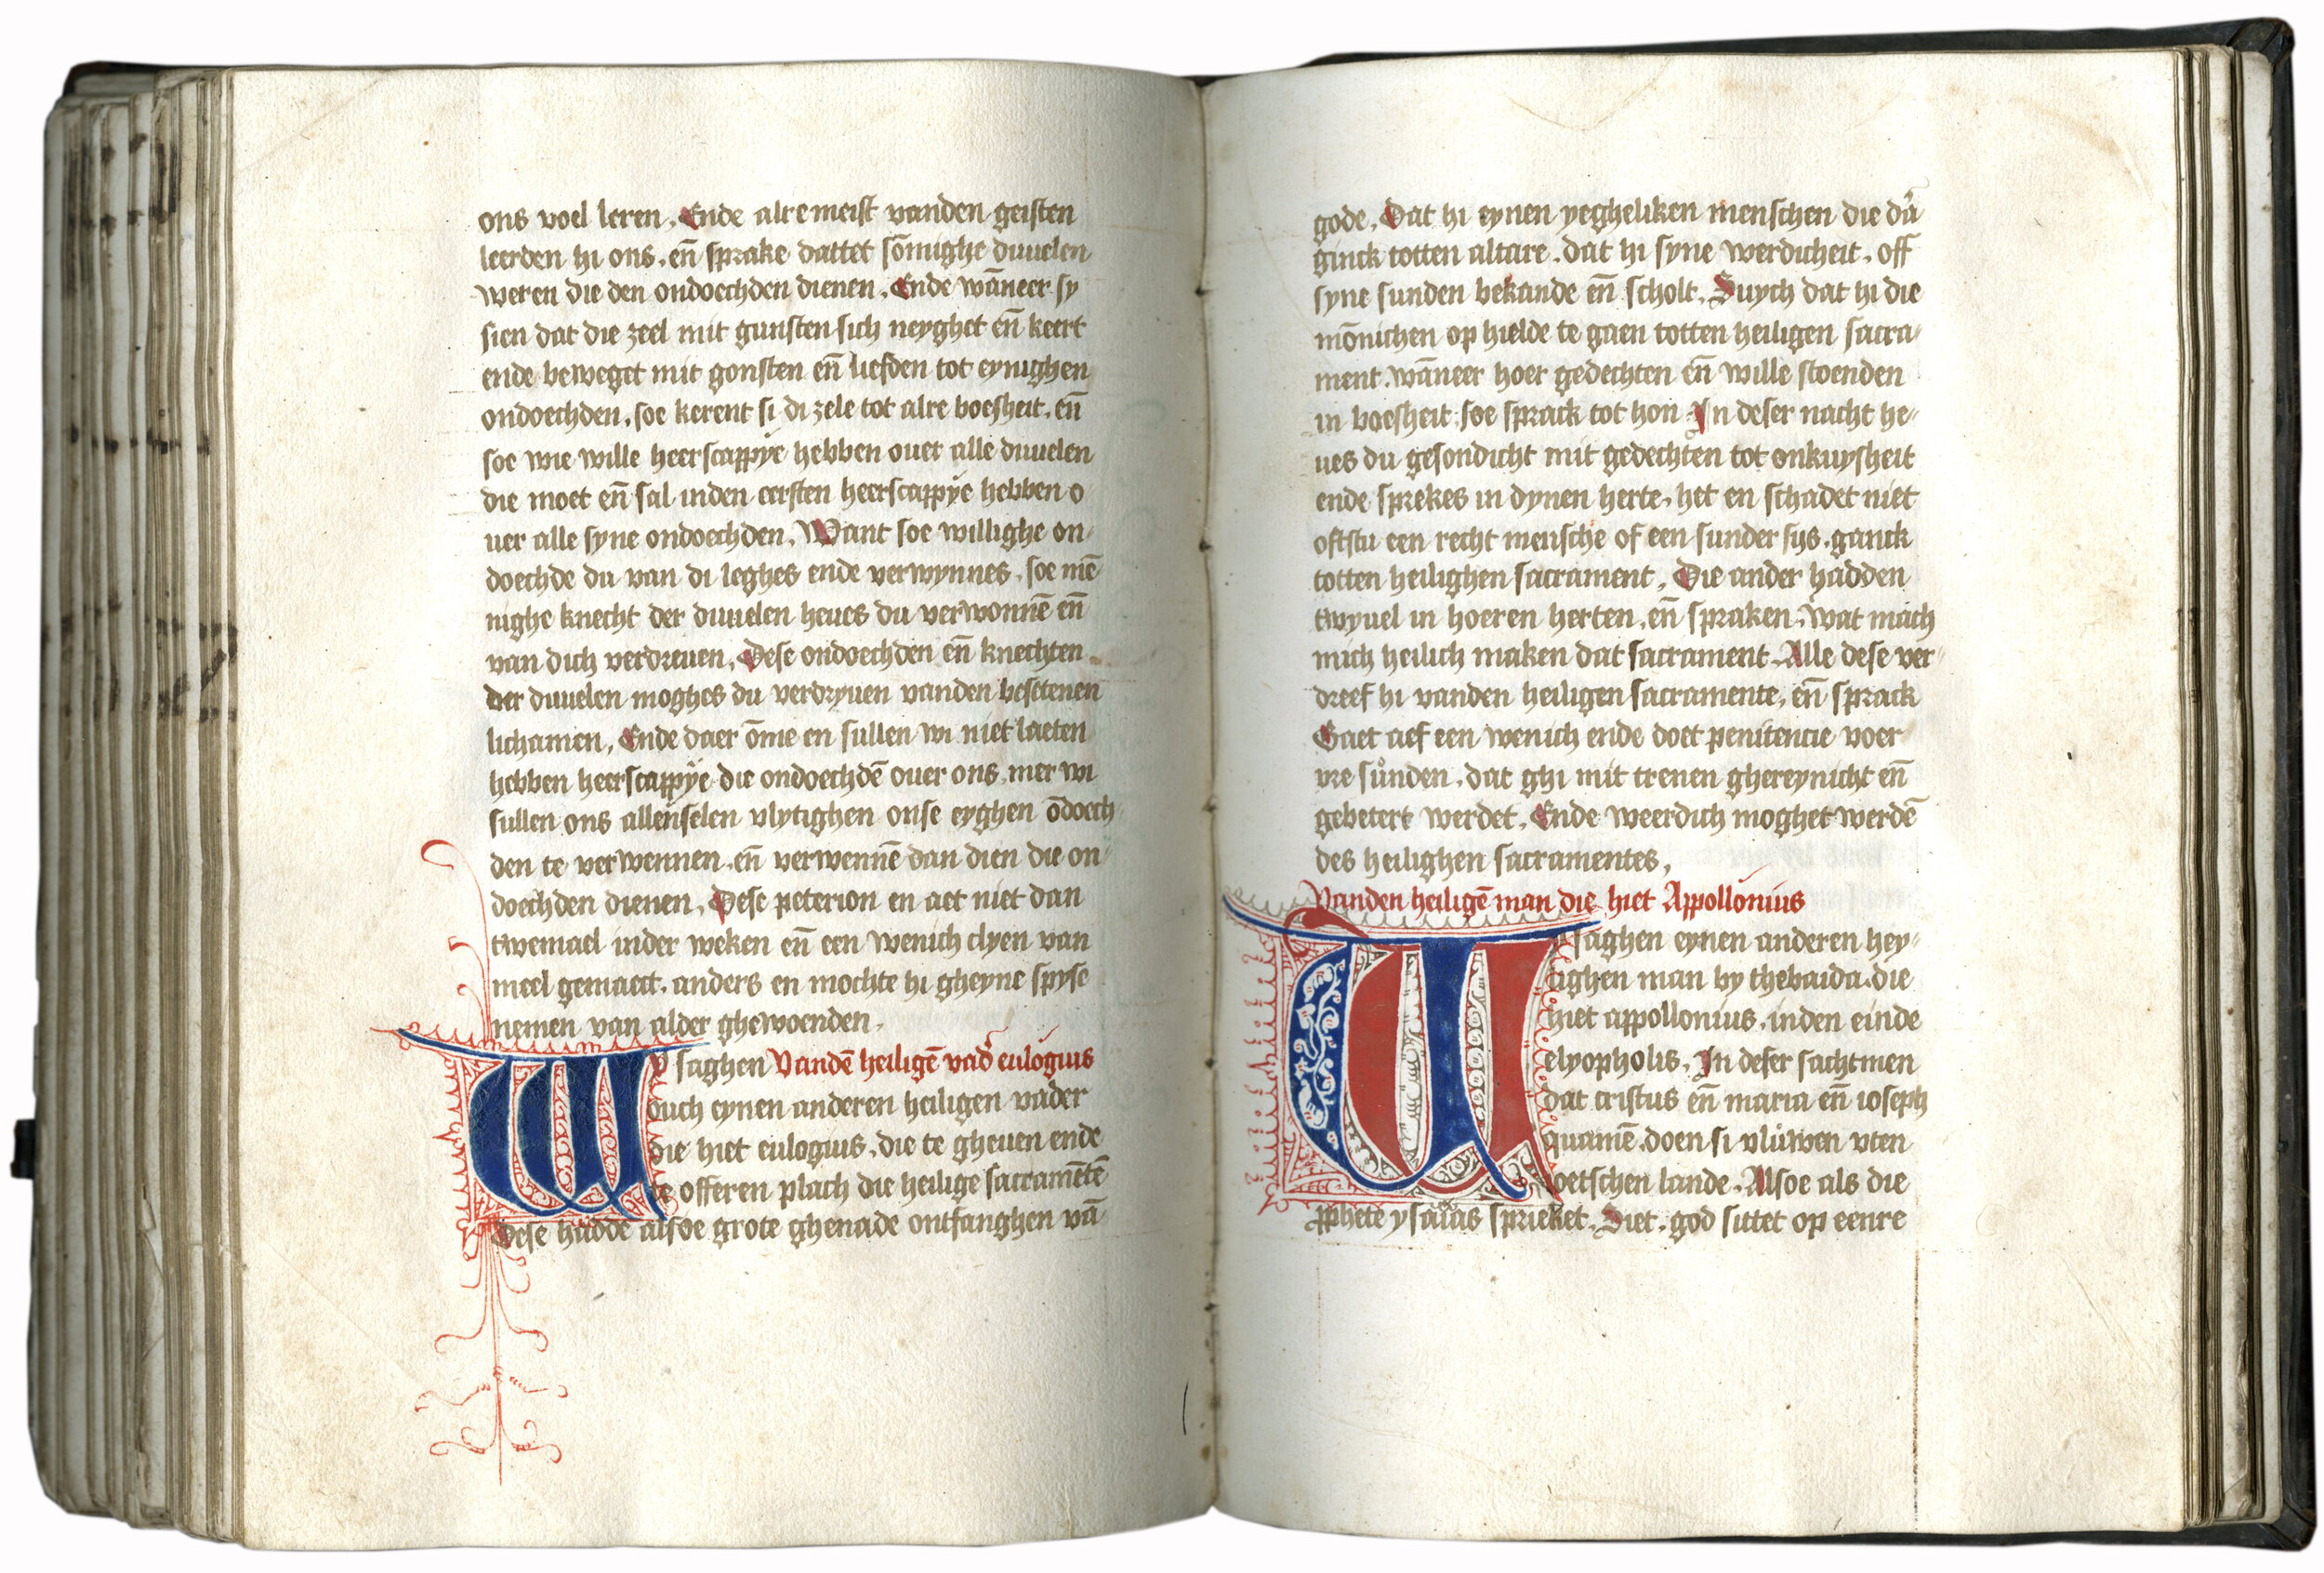 ons voel leren. Ende alremeist vanden geisten
leerden hi ons, en̄ sprake dattet sōmighe duuelen
weren die den ondoechden dienen. Ende wāneer sy
sien dat die zeel mit gunsten sich neyghet en̄ keert
ende beweget mit gonsten en̄ liefden tot eynighen
ondoechden, soe kerent si di zele tot alre boesheit, en̄
soe wie wille heerscappye hebben ouer alle duuelen
die moet en̄ sal inden eersten heerscappye hebben o
uer alle syne ondoechden. Want soe willighe on-
doechde du van di leghes ende verwynnes, soe mē
nighe knecht der duuelen heues du verwonnē en̄
van dich verdreuen. Dese ondoechden en̄ knechten
der duuelen moghes du verdryuen vanden besetenen
lichamen. Ende daer ōme en sullen wi niet laeten
hebben heerscappye die ondoechdē ouer ons, mer wi
sullen ons allenselen vlytighen onse eyghen ōdoech-
den te verwennen, en̄ verwennē dan dien die on-
doechden dienen. Dese peterion en aet niet dan
twemael inder weken en̄ een wenich clyen van
meel gemaect, anders en mochte hi gheyne spyse
nemen van alder ghewoenden.
Wy saghen Vandē heiligē vad̓ eulogius
ouch eynen anderen heiligen vader
die hiet eulogius, die te gheuen ende
te offeren plach die heilige sacramētē
Dese hadde alsoe grote ghenade ontfanghen vā
gode. Dat hi eynen yegheliken menschen die da̓
ginck totten altare, dat hi syne werdicheit, off
syne sunden bekande en̄ scholt. Suych dat hi die
mōnichen op hielde te gaen totten heiligen sacra-
ment, wāneer hoer gedechten en̄ wille stoenden
in boesheit, soe sprack tot hon In deser nacht he-
ues du gesondicht mit gedechten tot onkuysheit
ende sprekes in dynen herte, het en schadet niet
oftstu een recht mensche of een sunder sys, ganck
totten heilighen sacrament. Die ander hadden
twyuel in hoeren herten, en̄ spraken, wat mach
mich heilich maken dat sacrament. Alle dese ver-
dreef hi vanden heiligen sacramente, en̄ sprack
Gaet aef een wenich ende doet penitencie voer
vre su̇nden, dat ghi mit trenen ghereynicht en̄
gebetert werdet. Ende weerdich moghet werdē
des heilighen sacramentes.
Vanden heiligē man die hiet Appollonius
W saghen eynen anderen hey-
lighen man by thebaida, die
hiet appollonius, inden einde
elyopholis. In deser sachtmen
dat cristus en̄ maria en̄ ioseph
quamē, doen si vluwen vten
ioetschen lande. Alsoe als die
ꝓphete ysaias sprieket. Siet, god sittet op eenre